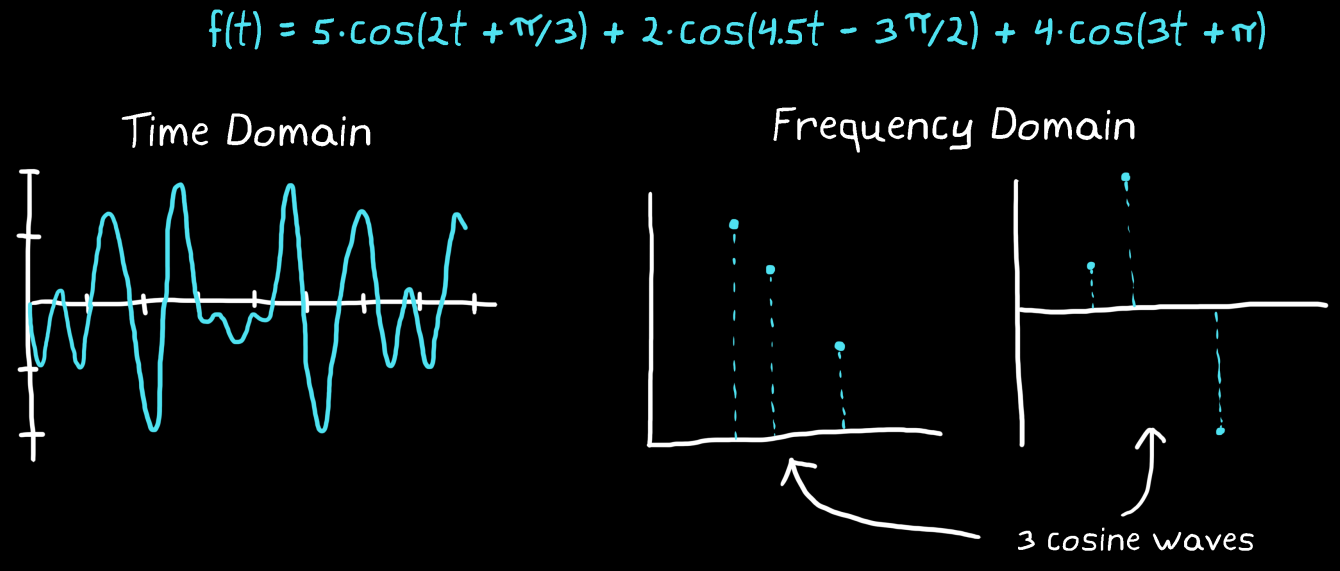 f(t) = 5·cos(2t + π/3) + 2·cos(4.5t - 3π/2) + 4·cos(3t + π)
Time Domain
Frequency Domain
3 cosine waves